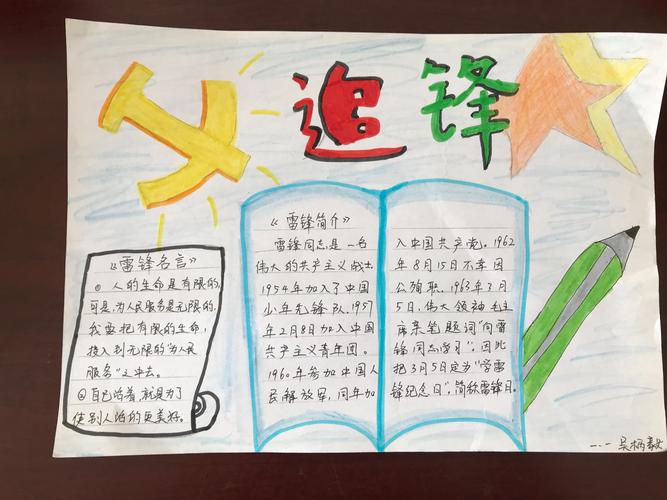 追锋
《雷锋名言》
① 人的生命是有限的,
可是,为人民服务是无限的,
我要把有限的生命,
投入到无限的“为人民
服务”之中去。
②自己活着,就是为了
使别人活的更美好。
《雷锋简介》
雷锋同志,是一名
伟大的共产主义战士.
1954年加入了中国
少年先锋队.1957
年2月8日加入中国
共产主义青年团。
1960年参加中国人
民解放军,同年加
入中国共产党。1962
年8月15日不幸因
公殉职。1963年3月
5日,伟大领袖毛主
席亲笔题词“向雷
锋同志学习”,因此
把3月5日定为“学雷
锋纪念日”,简称雷锋日。
一.一 吴柄毅